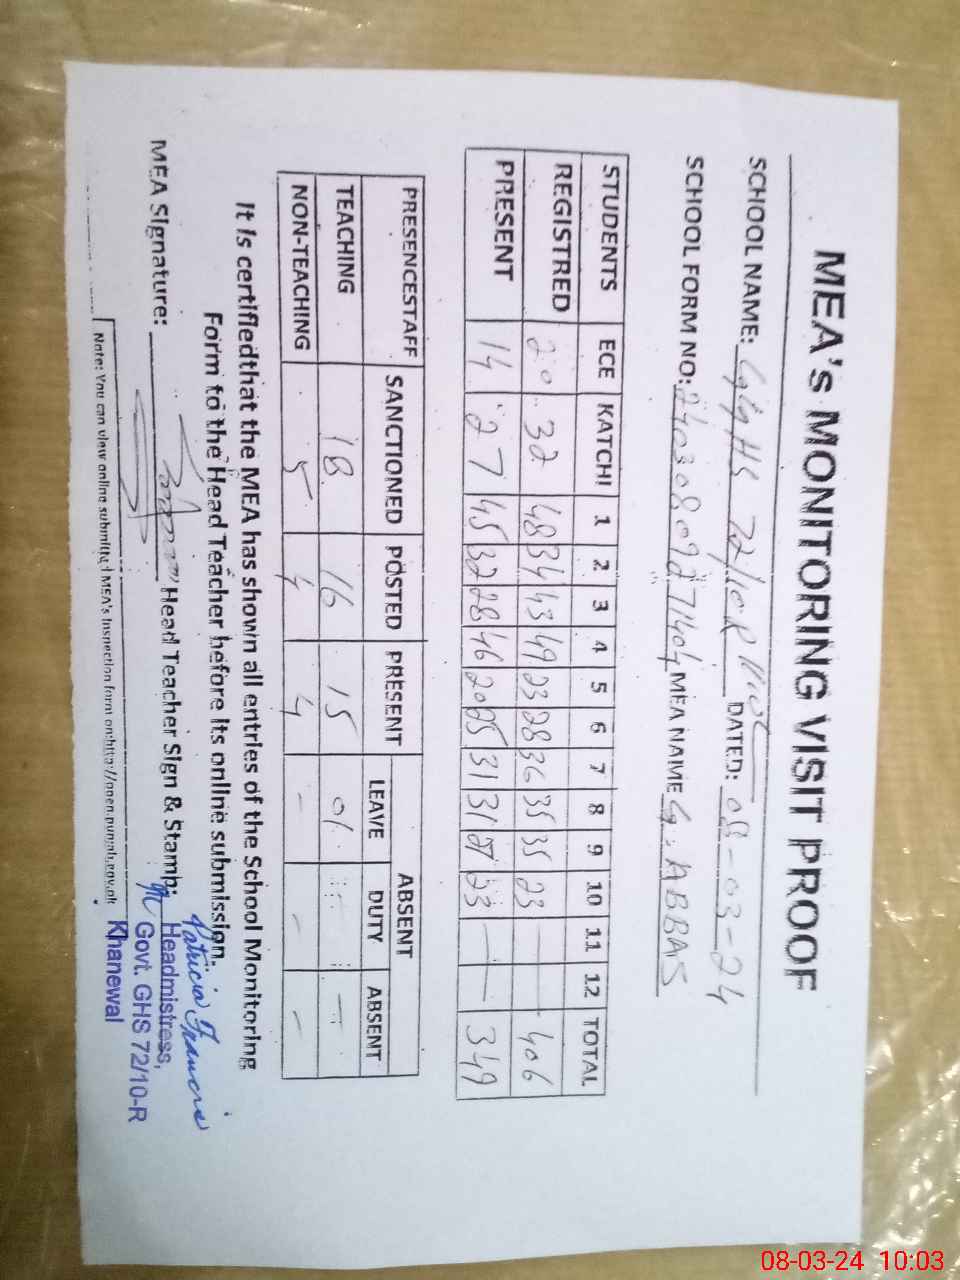 MEA's MONITORING VISIT PROOF
SCHOOL NAME: GGHS 72/10-R DATED: 08-03-24
SCHOOL FORM NO: MEA NAME G. ABBAS
STUDENTS ECE KATCHI 1 2 3 4 5 6 7 8 9 10 11 12 TOTAL
REGISTRED 20 32 48 34 43 49 23 28 36 35 35 23 — — 406
PRESENT 14 27 45 32 28 46 20 25 31 31 27 23 — — 349
PRESENCESTAFF SANCTIONED POSTED PRESENT ABSENT
LEAVE DUTY ABSENT
TEACHING 18 16 15 01 — —
NON-TEACHING 5 4 4 — — —
It is certifiedthat the MEA has shown all entries of the School Monitoring
Form to the Head Teacher before its online submission.
MEA Signature: Head Teacher Sign & Stamp: Patricia Francis
Headmistress,
Govt. GHS 72/10-R
Khanewal
Note: You can view online submitted MEA's Inspection form on:http://open.punjab.gov.pk
08-03-24 10:03